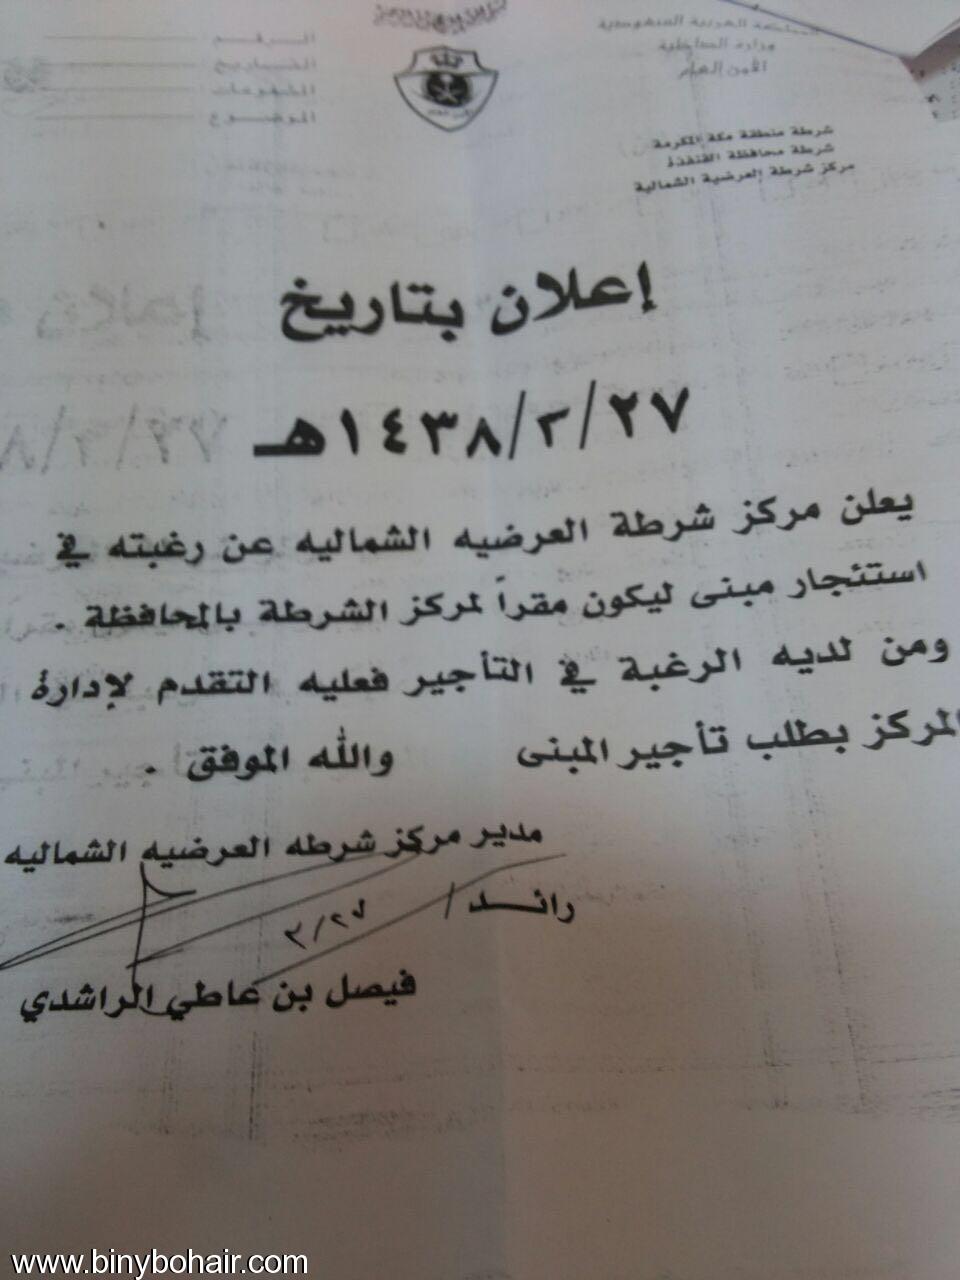 المملكة العربية السعودية
وزارة الداخلية
الأمن العام
شرطة منطقة مكة المكرمة
شرطة محافظة القنفذة
مركز شرطة العرضية الشمالية
الرقم :
التاريخ :
المشفوعات :
الموضوع :
إعلان بتاريخ
٢٧/٢/١٤٣٨هـ
يعلن مركز شرطة العرضيه الشماليه عن رغبته في
استئجار مبنى ليكون مقراً لمركز الشرطة بالمحافظة .
ومن لديه الرغبة في التأجير فعليه التقدم لإدارة
المركز بطلب تأجير المبنى والله الموفق .
مدير مركز شرطه العرضيه الشماليه
رائد /
٢/٢٧
فيصل بن عاطي الراشدي
www.binybohair.com